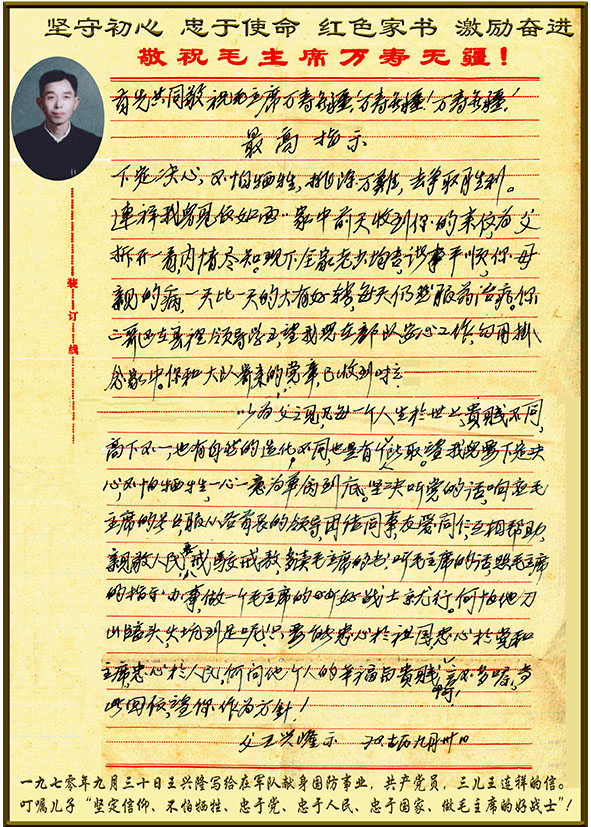 坚守初心 忠于使命 红色家书 激励奋进
敬祝毛主席万寿无疆!
首先共同敬祝毛主席万寿无疆!万寿无疆!万寿无疆!
最高指示
下定决心,不怕牺牲,排除万难,去争取胜利。
连祥我儿见信如面:家中前天收到你的来信为父
拆开一看,内情尽知。现下全家老少均吉,诸事平顺,你母
亲的病,一天比一天的大有好转,每天仍然服药治疗。你
二哥
望我儿在部队安心工作,勿用掛
念家中。你和大队寄来的党章,已收到
以为父之见,每一个人生於世上,貴賤不同,
高下不一,也有自然的造化不同,也是有能取,望我儿要下定决
心,不怕牺牲,一心一意为革命到底,坚决听党的话,响应毛
主席的号召,服从各首长的领导,团结同事,友爱同仁,互相帮助,
亲敬人民,戒骄戒教,多读毛主席的书,听毛主席的话,照毛主席
的指示办事,做一个毛主席的好战士就行。何怕他刀
山
火坑到足呢!只要能忠心於祖国忠心於党和
主席,忠心於人民,何问他个人的幸福与貴賤
此回信,望你作为方针!
父王兴隆示
九月卅日
装
订
线
一九七零年九月三十日王兴隆写给在军队献身国防事业,共产党员,三儿王连祥的信。
叮嘱儿子“坚定信仰、不怕牺牲、忠于党、忠于人民、忠于国家、做毛主席的好战士”!